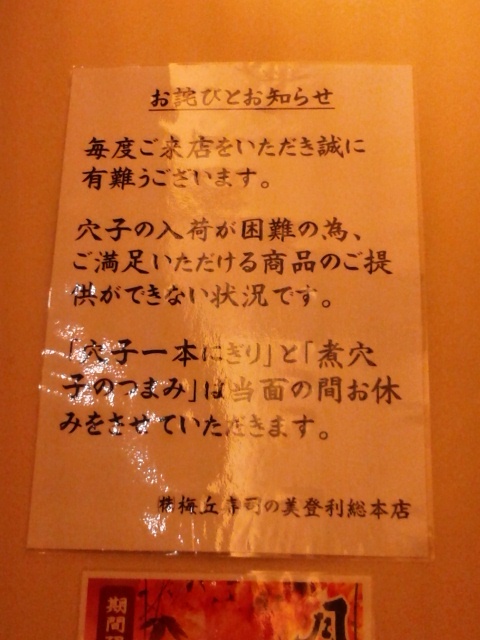 お詫びとお知らせ
毎度ご来店をいただき誠に
有難うございます。
穴子の入荷が困難の為、
ご満足いただける商品のご提
供ができない状況です。
「穴子一本にぎり」と「煮穴
子のつまみ」は当面の間お休
みをさせていただきます。
㈱梅丘寿司の美登利総本店
期間限
月